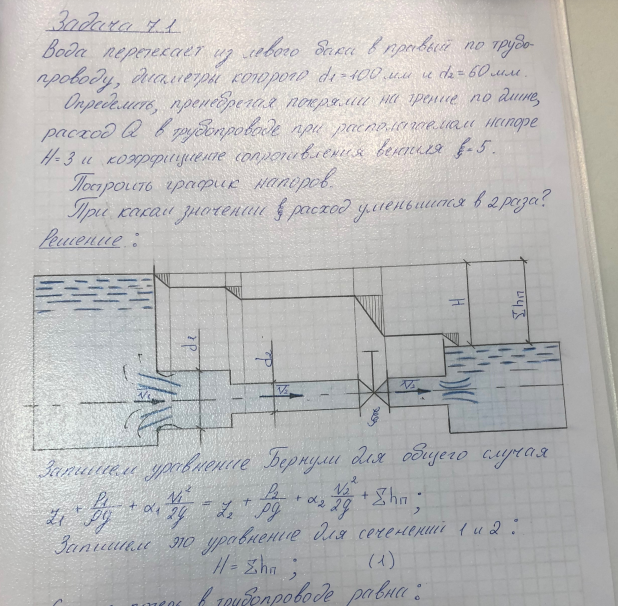 Задача 7.1
Вода перетекает из левого бака в правый по трубо-
проводу, диаметры которого d₁=100 мм и d₂=60 мм.
Определить, пренебрегая потерями на трение по длине,
расход Q в трубопроводе при располагаемом напоре
H=3 и коэффициенте сопротивления вентиля ξ=5.
Построить график напоров.
При каком значении ξ расход уменьшится в 2 раза?
Решение:
H
Σhп
d₁
d₂
V₁
V₂
V₂
Запишем уравнение Бернули для общего случая
z₁ + P₁/ρg + α₁ V₁²/2g = z₂ + P₂/ρg + α₂ V₂²/2g + Σhп;
Запишем это уравнение для сечений 1 и 2:
H = Σhп; (1)
в трубопроводе равна: